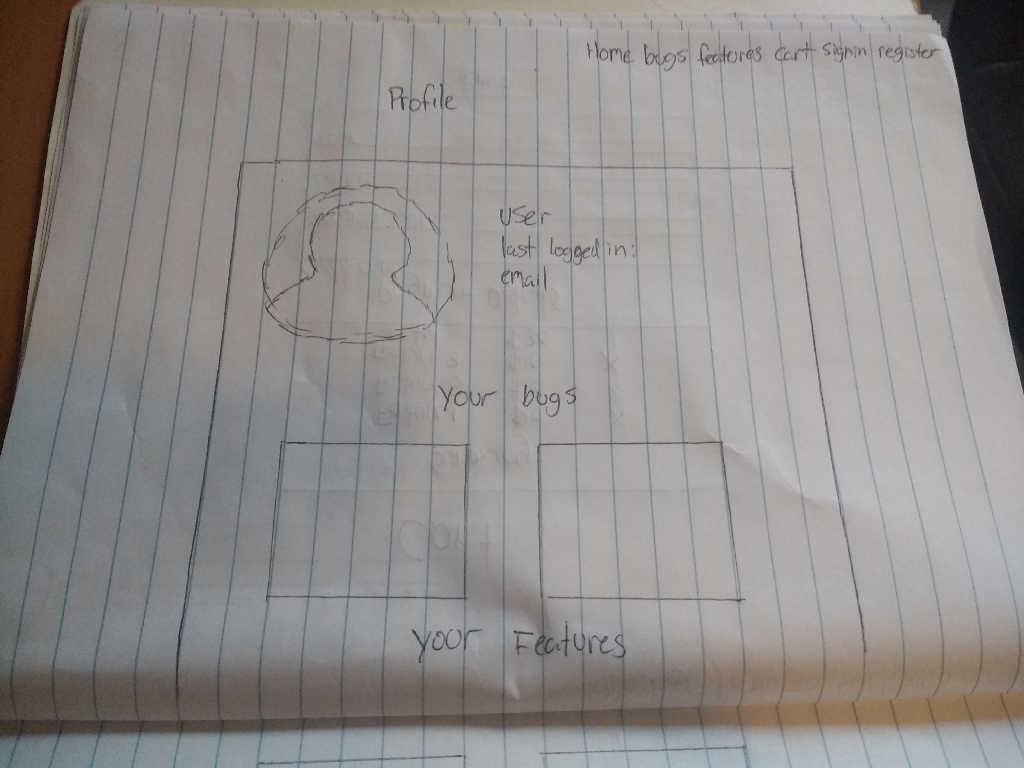 Home bugs features cart Signin register
Profile
user
last logged in:
email
your bugs
your Features